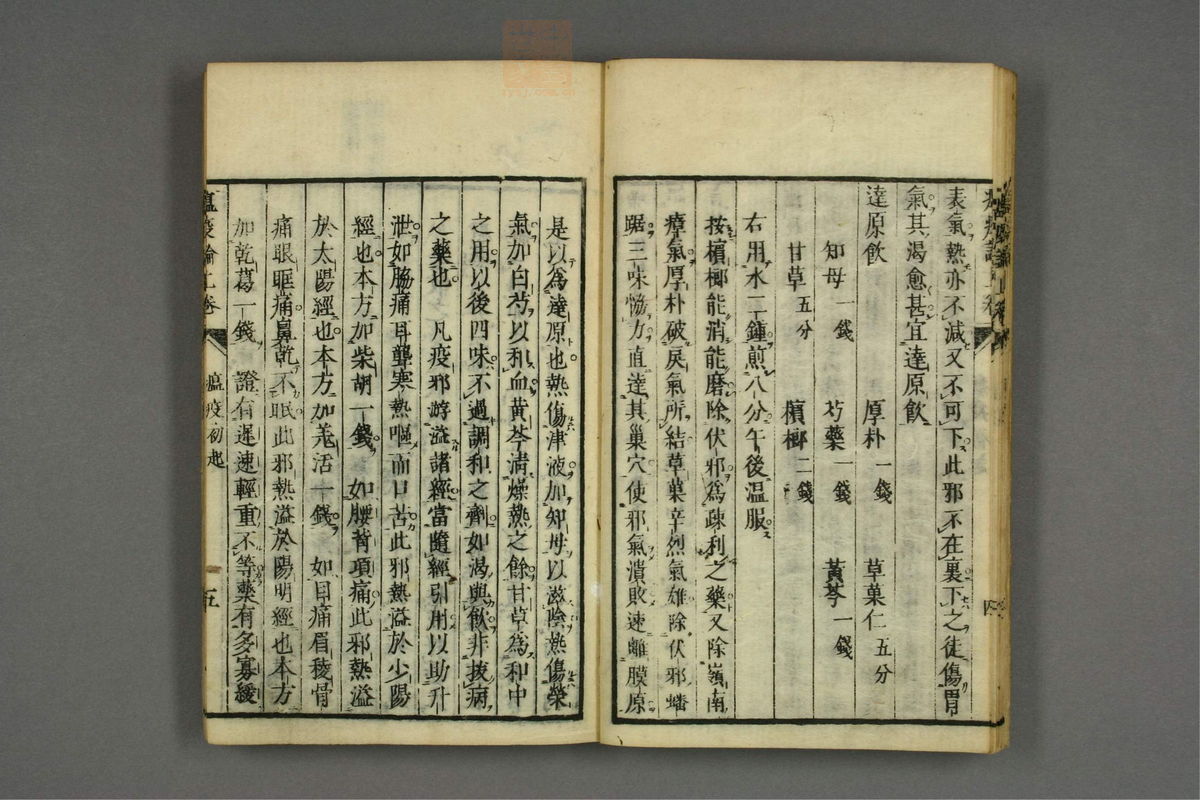 表氣熱亦不減又不可下此邪不在裏下之徒傷胃
氣其渴愈甚宜達原飲
達原飲
檳榔二錢
厚朴一錢
草菓仁五分
知母一錢
芍藥一錢
黃芩一錢
甘草五分
右用水二鍾煎八分午後温服
按檳榔能消能磨除伏邪爲疎利之藥又除嶺南
瘴氣厚朴破戾氣所結草菓辛烈氣雄除伏邪蟠
踞三味恊力直達其巢穴使邪氣潰敗速離膜原
是以爲達原也熱傷津液加知母以滋陰熱傷榮
氣加白芍以和血黃芩清燥熱之餘甘草爲和中
之用以後四味不過調和之劑如渴與飲非拔病
之藥也　凡疫邪游溢諸經當隨經引用以助升
泄如脇痛耳聾寒熱嘔而口苦此邪熱溢於少陽
經也本方加柴胡一錢　如腰背項痛此邪熱溢
於太陽經也本方加羗活一錢　如目痛眉稜骨
痛眼眶痛鼻乾不眠此邪熱溢於陽明經也本方
加乾葛一錢　證有遲速輕重不等藥有多寡緩
瘟疫論上卷
瘟疫初起
五